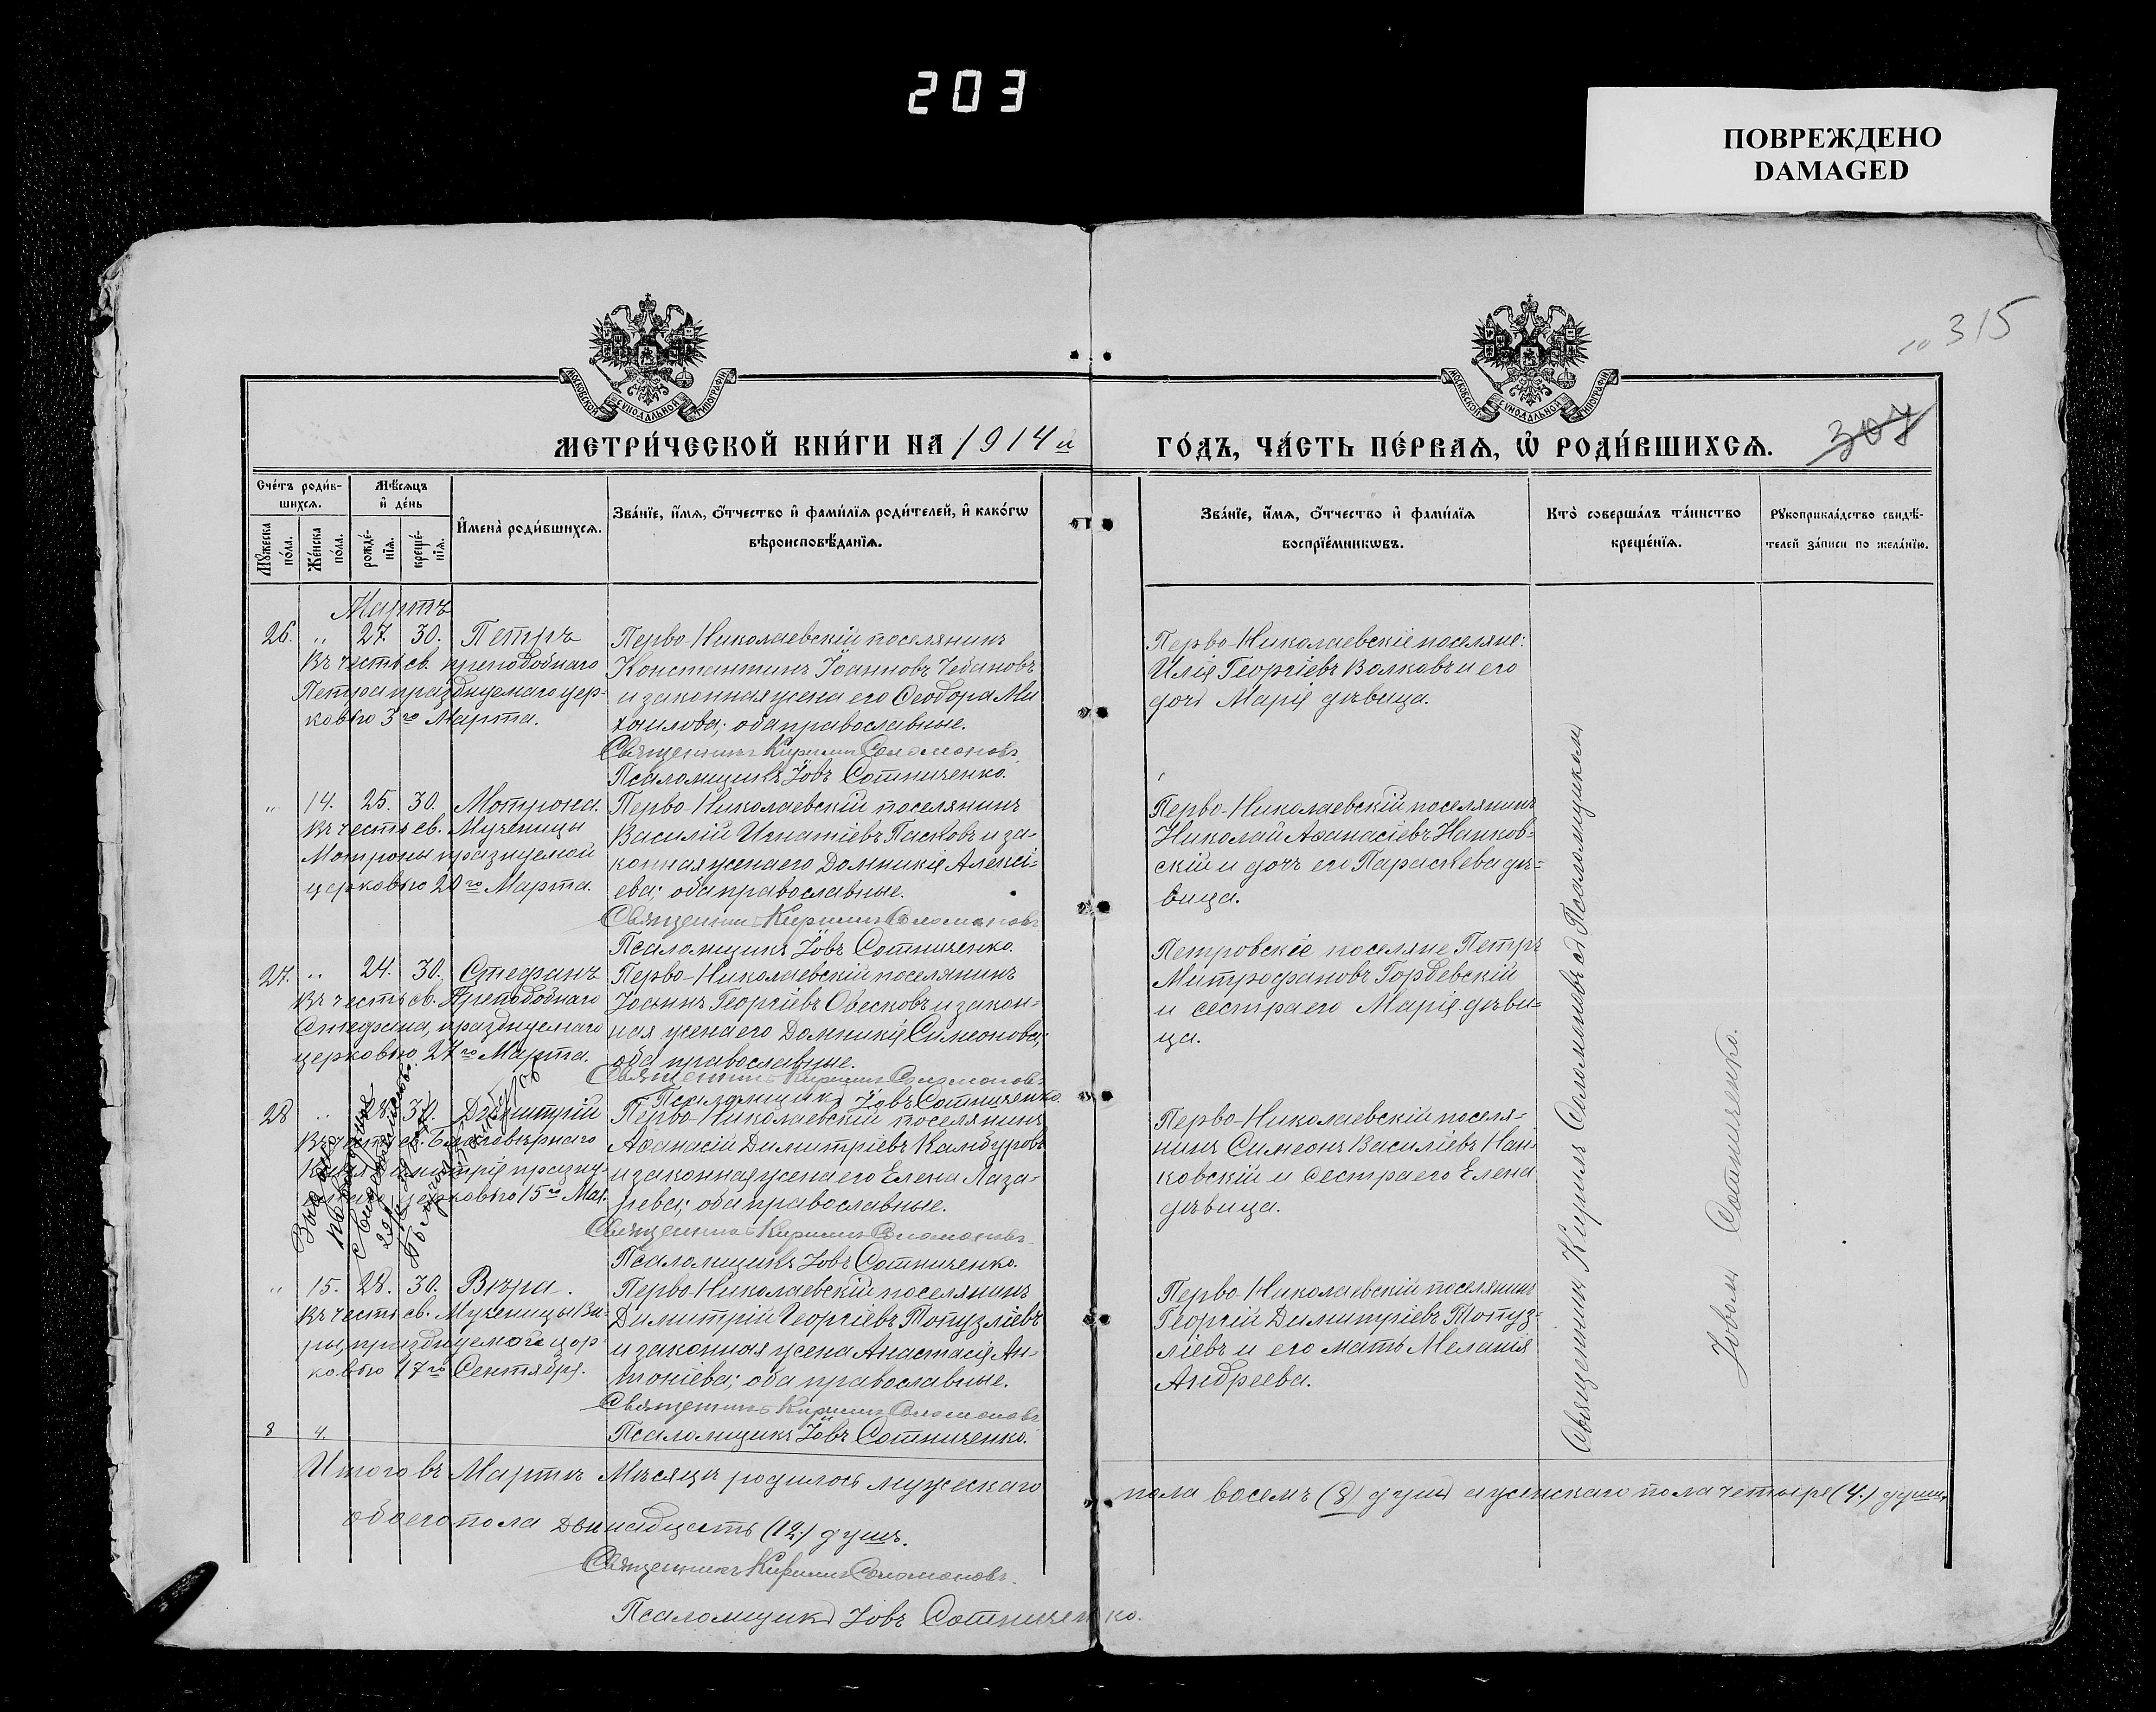 203
ПОВРЕЖДЕНО
DAMAGED
315
307
МОСКОВСКОЙ СѴНОДАЛЬНОЙ ТИПОГРАФІИ
МОСКОВСКОЙ СѴНОДАЛЬНОЙ ТИПОГРАФІИ
МЕТРИ́ЧЕСКОЙ КНИ́ГИ НА 1914й ГО́ДЪ, ЧА́СТЬ ПЕ́РВАЯ, Ѡ҆ РОДИ́ВШИХСѦ.
Сче́тъ роди́в-
шихсѧ.
Мꙋжеска по́ла.
Же́нска по́ла.
Мѣ́сѧцъ
и҆ де́нь
рожде́-нїѧ.
креще́-нїѧ.
И҆мена̀ роди́вшихсѧ.
Зва́нїе, и҆́мѧ, ѻ҆́тчество и҆ фами́лїѧ роди́телей, и҆ како́гѡ
вѣроисповѣ́данїѧ.
Зва́нїе, и҆́мѧ, ѻ҆́тчество и҆ фами́лїѧ
воспрїе́мникѡвъ.
Кто̀ соверша́лъ та́инство
креще́нїѧ.
Рꙋкоприкла́дство свидѣ́-
телей за́писи по жела́нїю.
Мартъ
26. " 27. 30. Петръ
Въ честь св. преподобнаго
Петра празднуемаго цер-
ковью 3го Марта.
Перво-Николаевскій поселянинъ
Константинъ Іоанновъ Чебановъ
и законная жена его Ѳеодора Ми
хаилова; оба православные.
Священникъ Кириллъ Соломоновъ
Псаломщикъ Іовъ Сотниченко.
Перво-Николаевскіе поселяне:
Илія Георгіевъ Волковъ и его
дочь Марія дѣвица.
" 14. 25. 30. Мотрона.
Въ честь св. Мученицы
Мотроны празнуемой
церковью 20го Марта.
Перво-Николаевскій поселянинъ
Василій Игнатіевъ Пасковъ и за-
конная жена его Домникія Алексі-
ева; оба православные.
Священникъ Кириллъ Соломоновъ
Псаломщикъ Іовъ Сотниченко.
Перво-Николаевскій поселянинъ
Николай Аѳанасіевъ Нанков-
скій и дочь его Параскева дѣ-
вица.
27. " 24. 30. Стефанъ
Въ честь св. Преподобнаго
Стефана, празднуемаго
церковью 27го Марта.
Перво-Николаевскій поселянинъ
Іоаннъ Георгіевъ Овесковъ и закон-
ная жена его Домникія Симеонова;
оба православные.
Священникъ Кириллъ Соломоновъ
Псаломщикъ Іовъ Сотниченко.
Петровскіе поселяне Петръ
Митрофановъ Горбевскій
и сестра его Марія дѣви-
ца.
28 " 28. 30. Димитрій
Въ честь св. Благовѣрнаго
церковью 15го Мая.
Перво-Николаевскій поселянинъ
Аѳанасій Димитріевъ Камбуровъ
и законная жена его Елена Лаза-
рева; оба православные.
Священникъ Кириллъ Соломоновъ
Псаломщикъ Іовъ Сотниченко.
Перво-Николаевскій поселя-
нинъ Симеонъ Василіевъ Нан-
ковскій и сестра его Елена
дѣвица.
" 15. 28. 30. Вѣра.
Въ честь св. Мученицы Вѣ-
ры, празднуемой цер-
ковью 17го Сентября.
Перво-Николаевскій поселянинъ
Димитрій Георгіевъ Топузліевъ
и законная жена Анастасія Ан-
тоніева; оба православные.
Священникъ Кириллъ Соломоновъ
Псаломщикъ Іовъ Сотниченко.
Перво-Николаевскій поселянинъ
Георгій Димитріевъ Топуз-
ліевъ и его мать Меланія
Андреева.
Священникъ Кириллъ Соломоновъ съ Псаломщикомъ
Іовомъ Сотниченко.
8 4.
Итого въ Мартѣ Мѣсяцѣ родилось мужескаго пола восемь (8) душъ а женскаго пола четыре (4.) души,
обоего пола двѣнадцать (12.) душъ.
Священникъ Кириллъ Соломоновъ.
Псаломщикъ Іовъ Сотниченко.